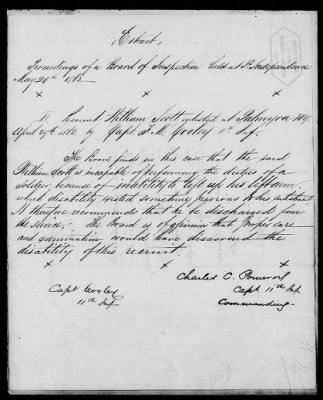 Extract,
Proceedings of a Board of Inspection held at Ft. Independence
May 20th 1862
x x x
II. Recruit William Scott enlisted at Palmyra N.Y.
April 29th 1862 by Capt. F. M. Cooley 11th Inf.
The Board finds in this case that the said
William Scott is incapable of performing the duties of a
soldier, because of inability to lift up his left arm,
which disability existed sometime previous to his enlistment
It therefore recommends that he be discharged from
the service. The Board is of opinion that proper care
and examination would have discovered the
disability of this recruit.
x x x
Charles C. 
Capt. 11th Inf.
Commanding
Capt Cooley
11th Inf